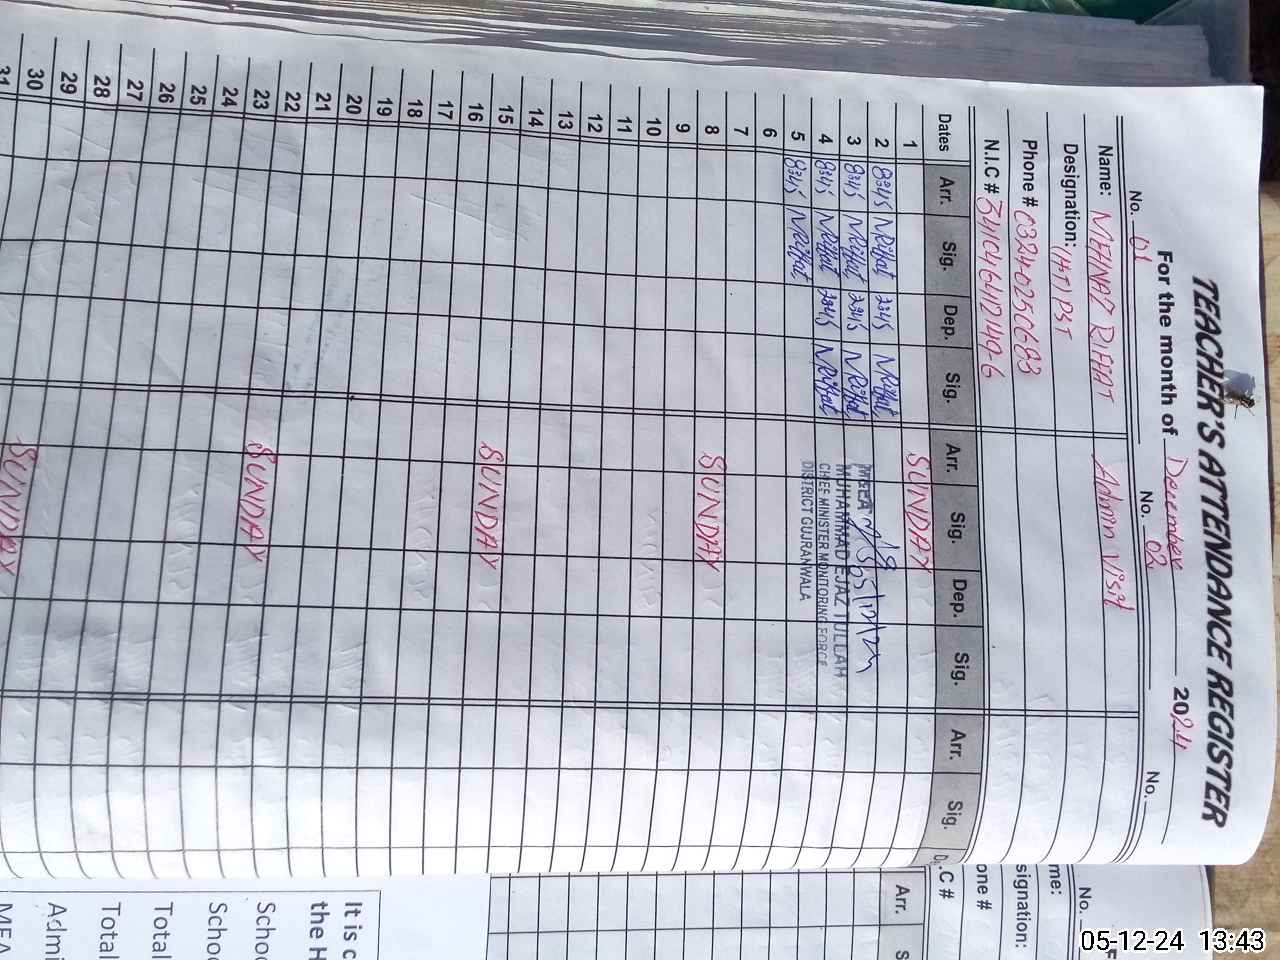 TEACHER'S ATTENDANCE REGISTER
For the month of December 2024
No. 01 No. 02 No.
Name: MEHNAZ RIFFAT Admin Visit
Designation: (HT) PST
Phone # 03240250683
N.I.C #
Dates Arr. Sig. Dep. Sig. Arr. Sig. Dep. Sig. Arr. Sig. D
1 SUNDAY
2 8:45 MRiffat 2:45 MRiffat
3 8:45 MRiffat 2:45 MRiffat
4 8:45 MRiffat 2:45 MRiffat
5 8:45 MRiffat
6
7
8 SUNDAY
9
10
11
12
13
14
15 SUNDAY
16
17
18
19
20
21
22
23 SUNDAY
24
25
26
27
28
29
30
31 SUNDAY
MUHAMMAD EJAZ TULLAH
CHIEF MINISTER MONITORING FORCE
DISTRICT GUJRANWALA
No.
me:
signation:
one #
.C #
Arr.
S
It is c
the H
Schoo
Schoo
Total
Total
Admi
MEA
05-12-24 13:43